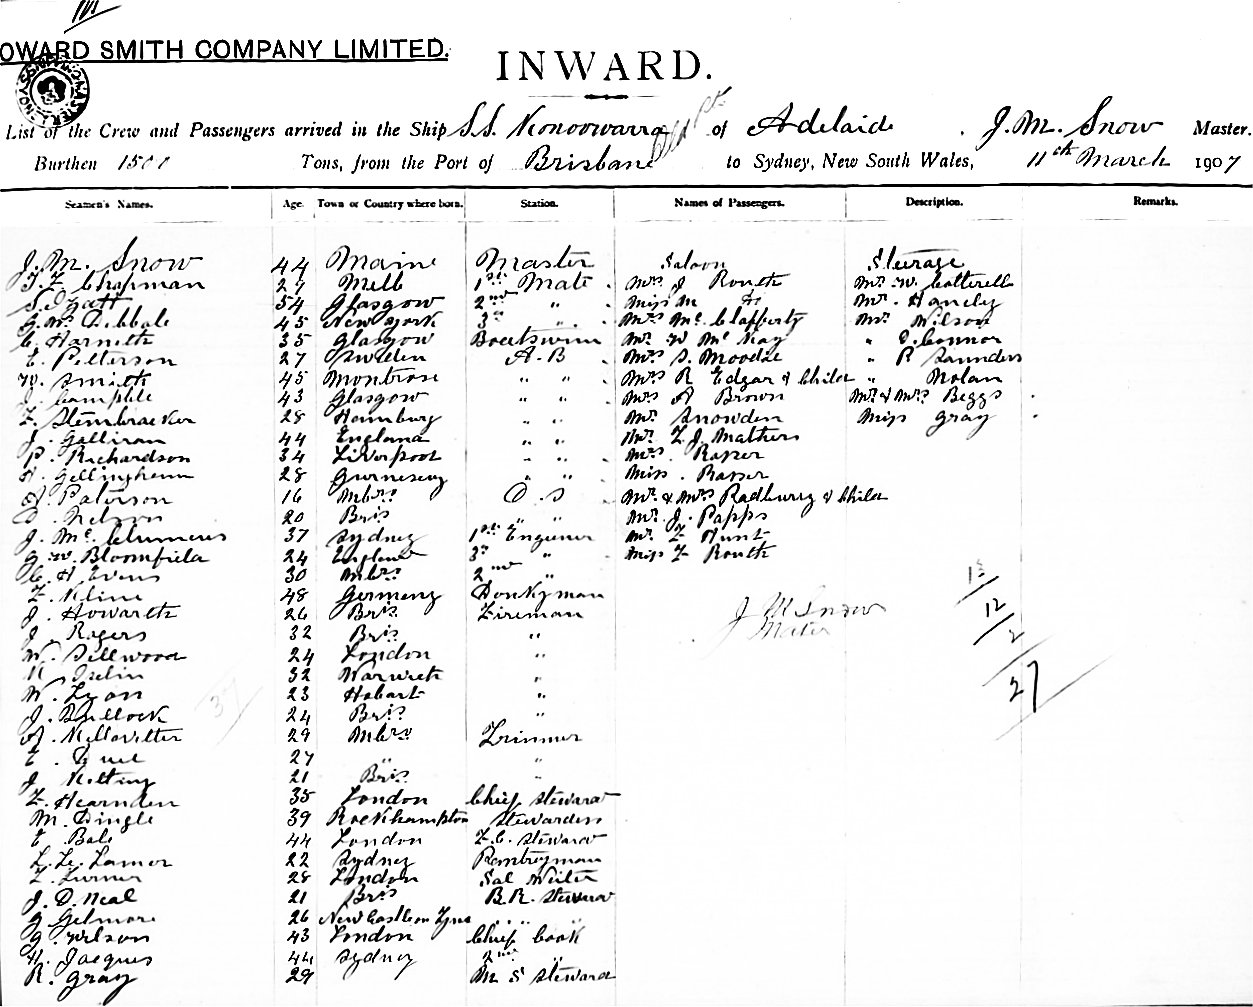 OWARD SMITH COMPANY LIMITED.
INWARD.
List of the Crew and Passengers arrived in the Ship S.S. Nonoowarra of Adelaide. J. M. Snow Master.
Burthen 1501 Tons, from the Port of Brisbane to Sydney, New South Wales, 11th March 1907
Seamen's Names. Age. Town or Country where born. Station. Names of Passengers. Description. Remarks.
J. M. Snow 44 Maine Master Saloon Steerage
Chapman 27 Melb 1st Mate Mrs J Routh Mr W. Cotterell
54 Glasgow 2nd " Miss M Mr. Handly
45 New York 3rd " Mrs Mc Clafferty Mr Wilson
C. Harnett 35 Glasgow Boatswain Mr W Mc Kay " O. Connor
E. Petterson 27 Sweden A.B Mrs S. Moodie " R Saunders
W. Smith 45 Montrose " " Mrs R Edgar & Child " Nolan
J. Cample 43 Glasgow " " Mrs A Brown Mr & Mrs Beggs
28 Hamburg " " Mr Snowden Miss Gray
J. Galliran 44 England " " Mr. F J. Mathers
P. Richardson 34 Liverpool " " Mrs. Rasser
Gellingham 28 Gurnesey " " Miss. Rasser
A. Paterson 16 Mlb. O.S Mr & Mrs Radburry & Child
Nelson 20 Bris " " Mr. J. Papps
J. Mc. 37 Sydney 1st Engineer Mr. F Hunt
G. W. Bloomfield 24 England 3rd " Miss F Routh
C. H Evens 30 Mlb. 2nd "
F. Kline 48 Germeny Donkyman
J. Howarth 26 Bris. Fireman J M Snow 12
J Rogers 32 Bris " Master 2
W. Sillwood 24 London "
32 Warwick " 27
W. Lyon 23 Hobart " 37
J. Bullock 24 Bris. "
29 Mlb. Trimmer
27 " "
J Nolting 21 Bris. "
F. Hearnden 35 London Chief Steward
M. Dingle 39 Rockhampton Stewardess
E Bale 44 London F.C. Steward
L. Le. Lamer 22 Sydney Pantryman
F. Turner 28 London Sal Waiter
J. D. Neal 21 Bris B.R. Steward
G. Gilmore 26 New Castle on Tyne " "
G. Wilson 43 London Chief Cook
H. Jacques 44 Sydney 2nd "
R. Gray 29 M S Steward